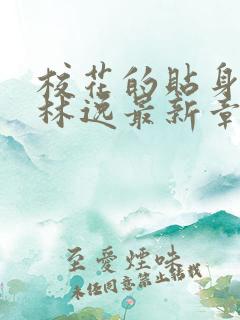 校花的貼身
林逸最新章
至愛煙味
未经同意禁止转载